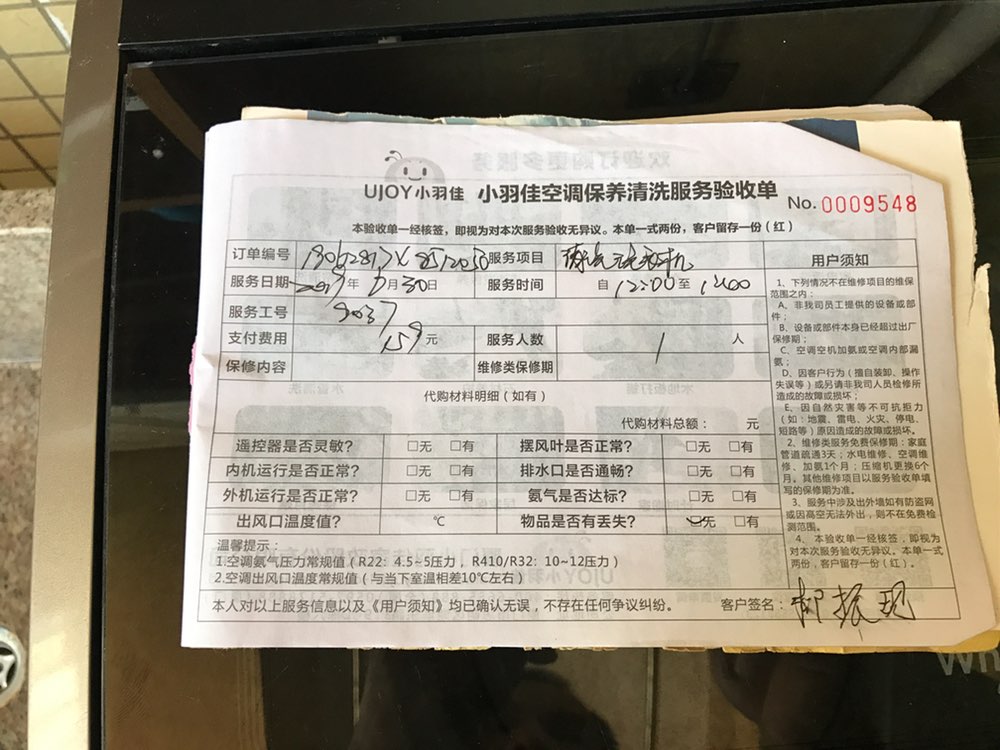 UJOY小羽佳 小羽佳空调保养清洗服务验收单 No.0009548
本验收单一经核签，即视为对本次服务验收无异议。本单一式两份，客户留存一份（红）
订单编号 服务项目
服务日期 2019年6月30日 服务时间 自12:00至1400
服务工号 9037
支付费用 159元 服务人数 1人
保修内容 维修类保修期
代购材料明细（如有）
代购材料总额： 元
遥控器是否灵敏？ □无 □有 摆风叶是否正常？ □无 □有
内机运行是否正常？ □无 □有 排水口是否通畅？ □无 □有
外机运行是否正常？ □无 □有 氨气是否达标？ □无 □有
出风口温度值？ ℃ 物品是否有丢失？ 无 □有
温馨提示：
1.空调氨气压力常规值（R22：4.5~5压力，R410/R32：10~12压力）
2.空调出风口温度常规值（与当下室温相差10℃左右）
本人对以上服务信息以及《用户须知》均已确认无误，不存在任何争议纠纷。 客户签名：
用户须知
1、下列情况不在维修项目的维保
范围之内：
A、非我司员工提供的设备或部
件；
B、设备或部件本身已经超过出厂
保修期；
C、空调空机加氨或空调内部漏
氨；
D、因客户行为（擅自装卸、操作
失误等）或另请非我司人员检修所
造成的故障或损坏；
E、因自然灾害等不可抗拒力
（如：地震、雷电、火灾、停电、
短路等）原因造成的故障或损坏。
2、维修类服务免费保修期：家庭
管道疏通3天；水电维修、空调维
修、加氨1个月；压缩机更换6个
月。其他维修项目以服务验收单填
写的保修期为准。
3、服务中涉及出外墙如有防盗网
或因高空无法外出，则不在免费检
测范围。
4、本验收单一经核签，即视为
对本次服务验收无异议。本单一式
两份，客户留存一份（红）。